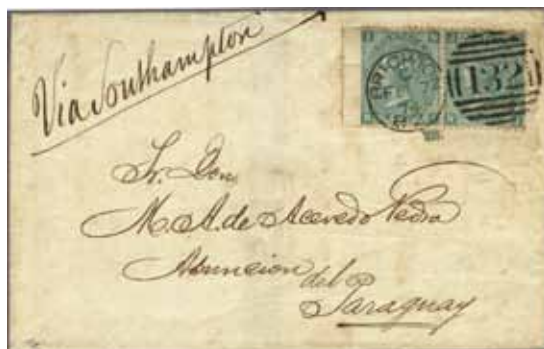 Via Southampton
BRIGHTON
132
Sr. Don
M. A. de Acevedo
Asuncion del
Paraguay